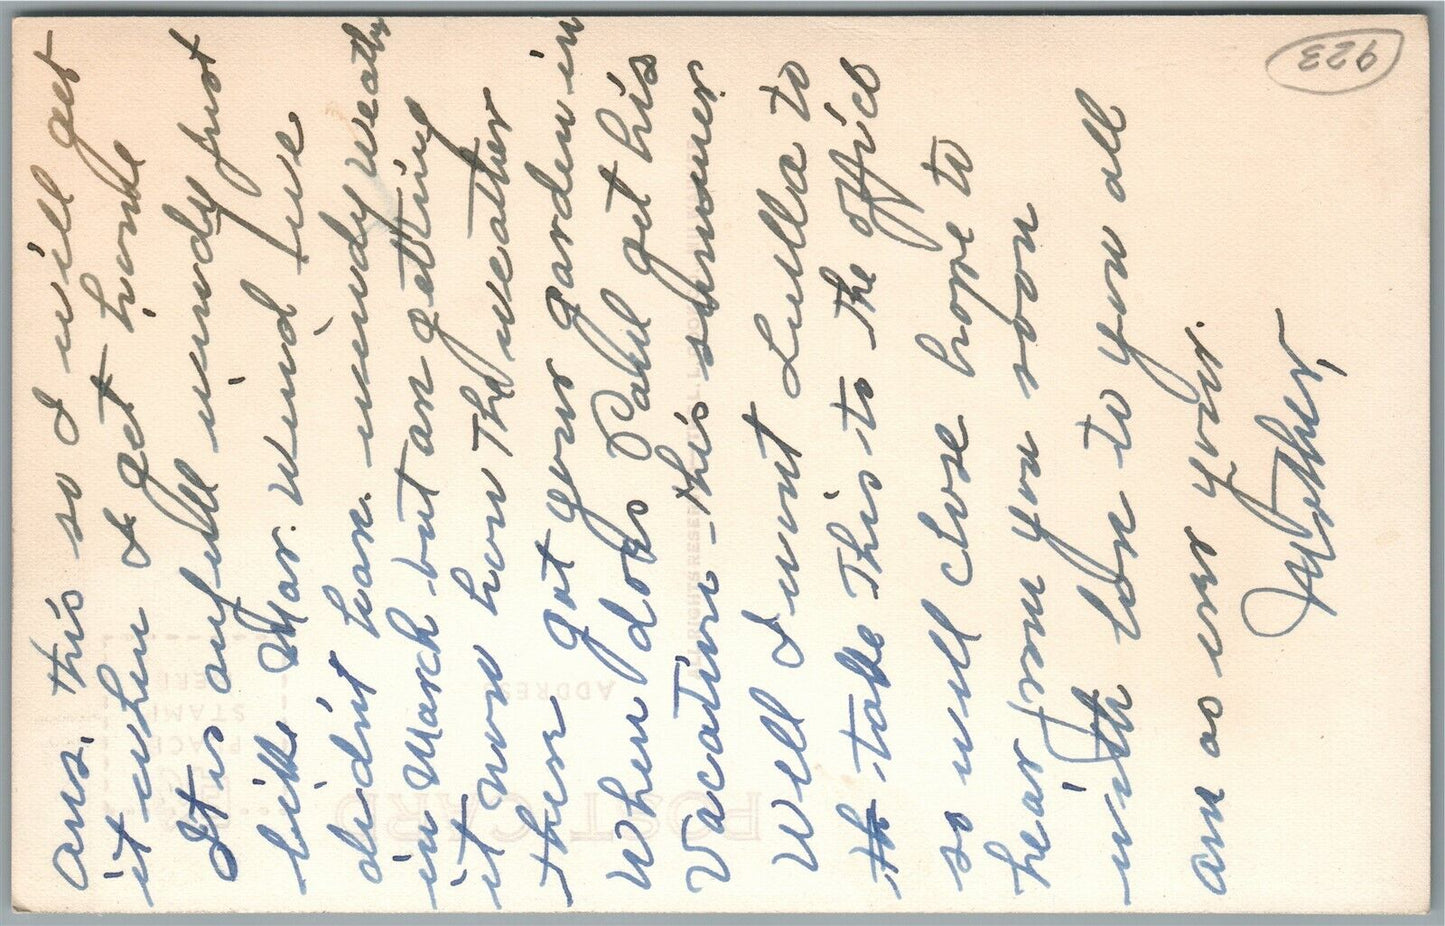 ans. this so I will get
it when I get home
Its awfull windy just
like Mar. wind we
didn't have windy weather
in March but are getting
it now how The weather
there got your garden in
When does Paul get his
vacation this summer.
Well I want Lulla to
take This to the office
so will close hope to
hear from you soon
with love to you all
am as ever your.
Mother,
923
POST CARD
ADDRESS
PLACE
STAMP
HERE